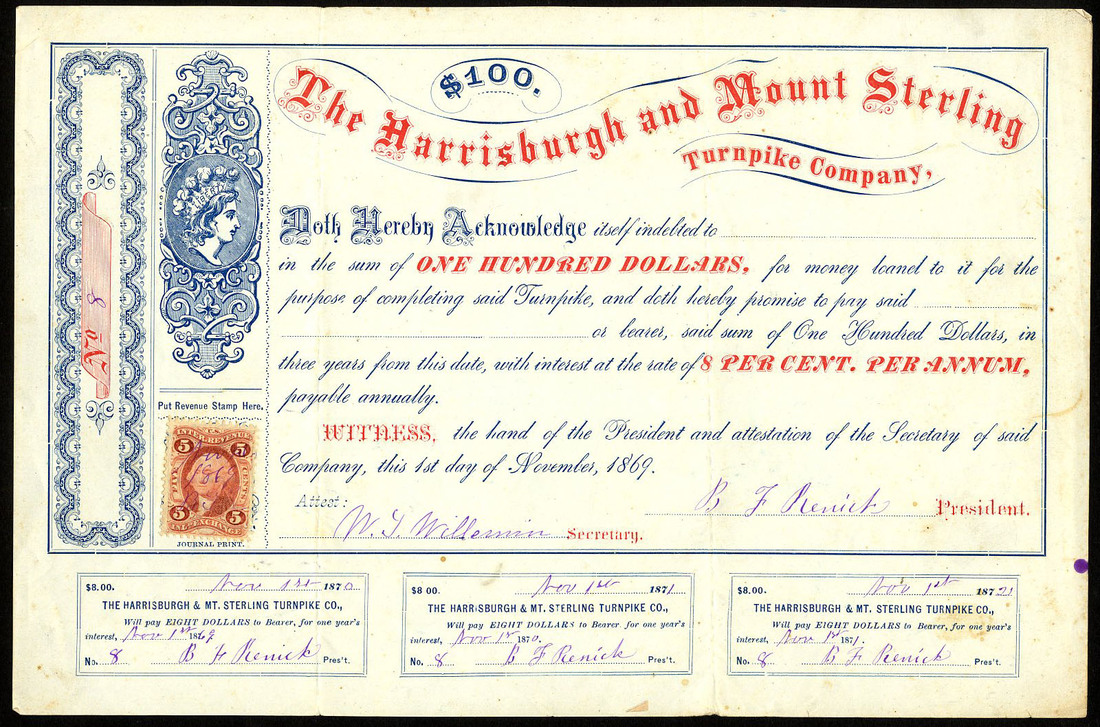 $100.
The Harrisburgh and Mount Sterling
Turnpike Company,
No. 8
LIBERTY
Doth Hereby Acknowledge itself indebted to
in the sum of ONE HUNDRED DOLLARS, for money loaned to it for the
purpose of completing said Turnpike, and doth hereby promise to pay said
or bearer, said sum of One Hundred Dollars, in
three years from this date, with interest at the rate of 8 PER CENT. PER ANNUM,
payable annually.
Put Revenue Stamp Here.
WITNESS, the hand of the President and attestation of the Secretary of said
Company, this 1st day of November, 1869.
U.S.
INTER. REVENUE
5 5
FIVE CENTS
1869
5 5
INL. EXCHANGE
JOURNAL PRINT.
Attest:
B F Renick President.
Secretary.
$8.00. Nov 1st 1870
THE HARRISBURGH & MT. STERLING TURNPIKE CO.,
Will pay EIGHT DOLLARS to Bearer, for one year's
interest, Nov 1st 1869
No. 8 B F Renick Pres't.
$8 00. Nov 1st 1871
THE HARRISBURGH & MT. STERLING TURNPIKE CO.,
Will pay EIGHT DOLLARS to Bearer, for one year's
interest, Nov 1st 1870.
No. 8 B F Renick Pres't.
$8.00. Nov 1st 187
THE HARRISBURGH & MT. STERLING TURNPIKE CO.,
Will pay EIGHT DOLLARS to Bearer, for one year's
interest, Nov 1st 1871.
No. 8 B F Renick Pres't.